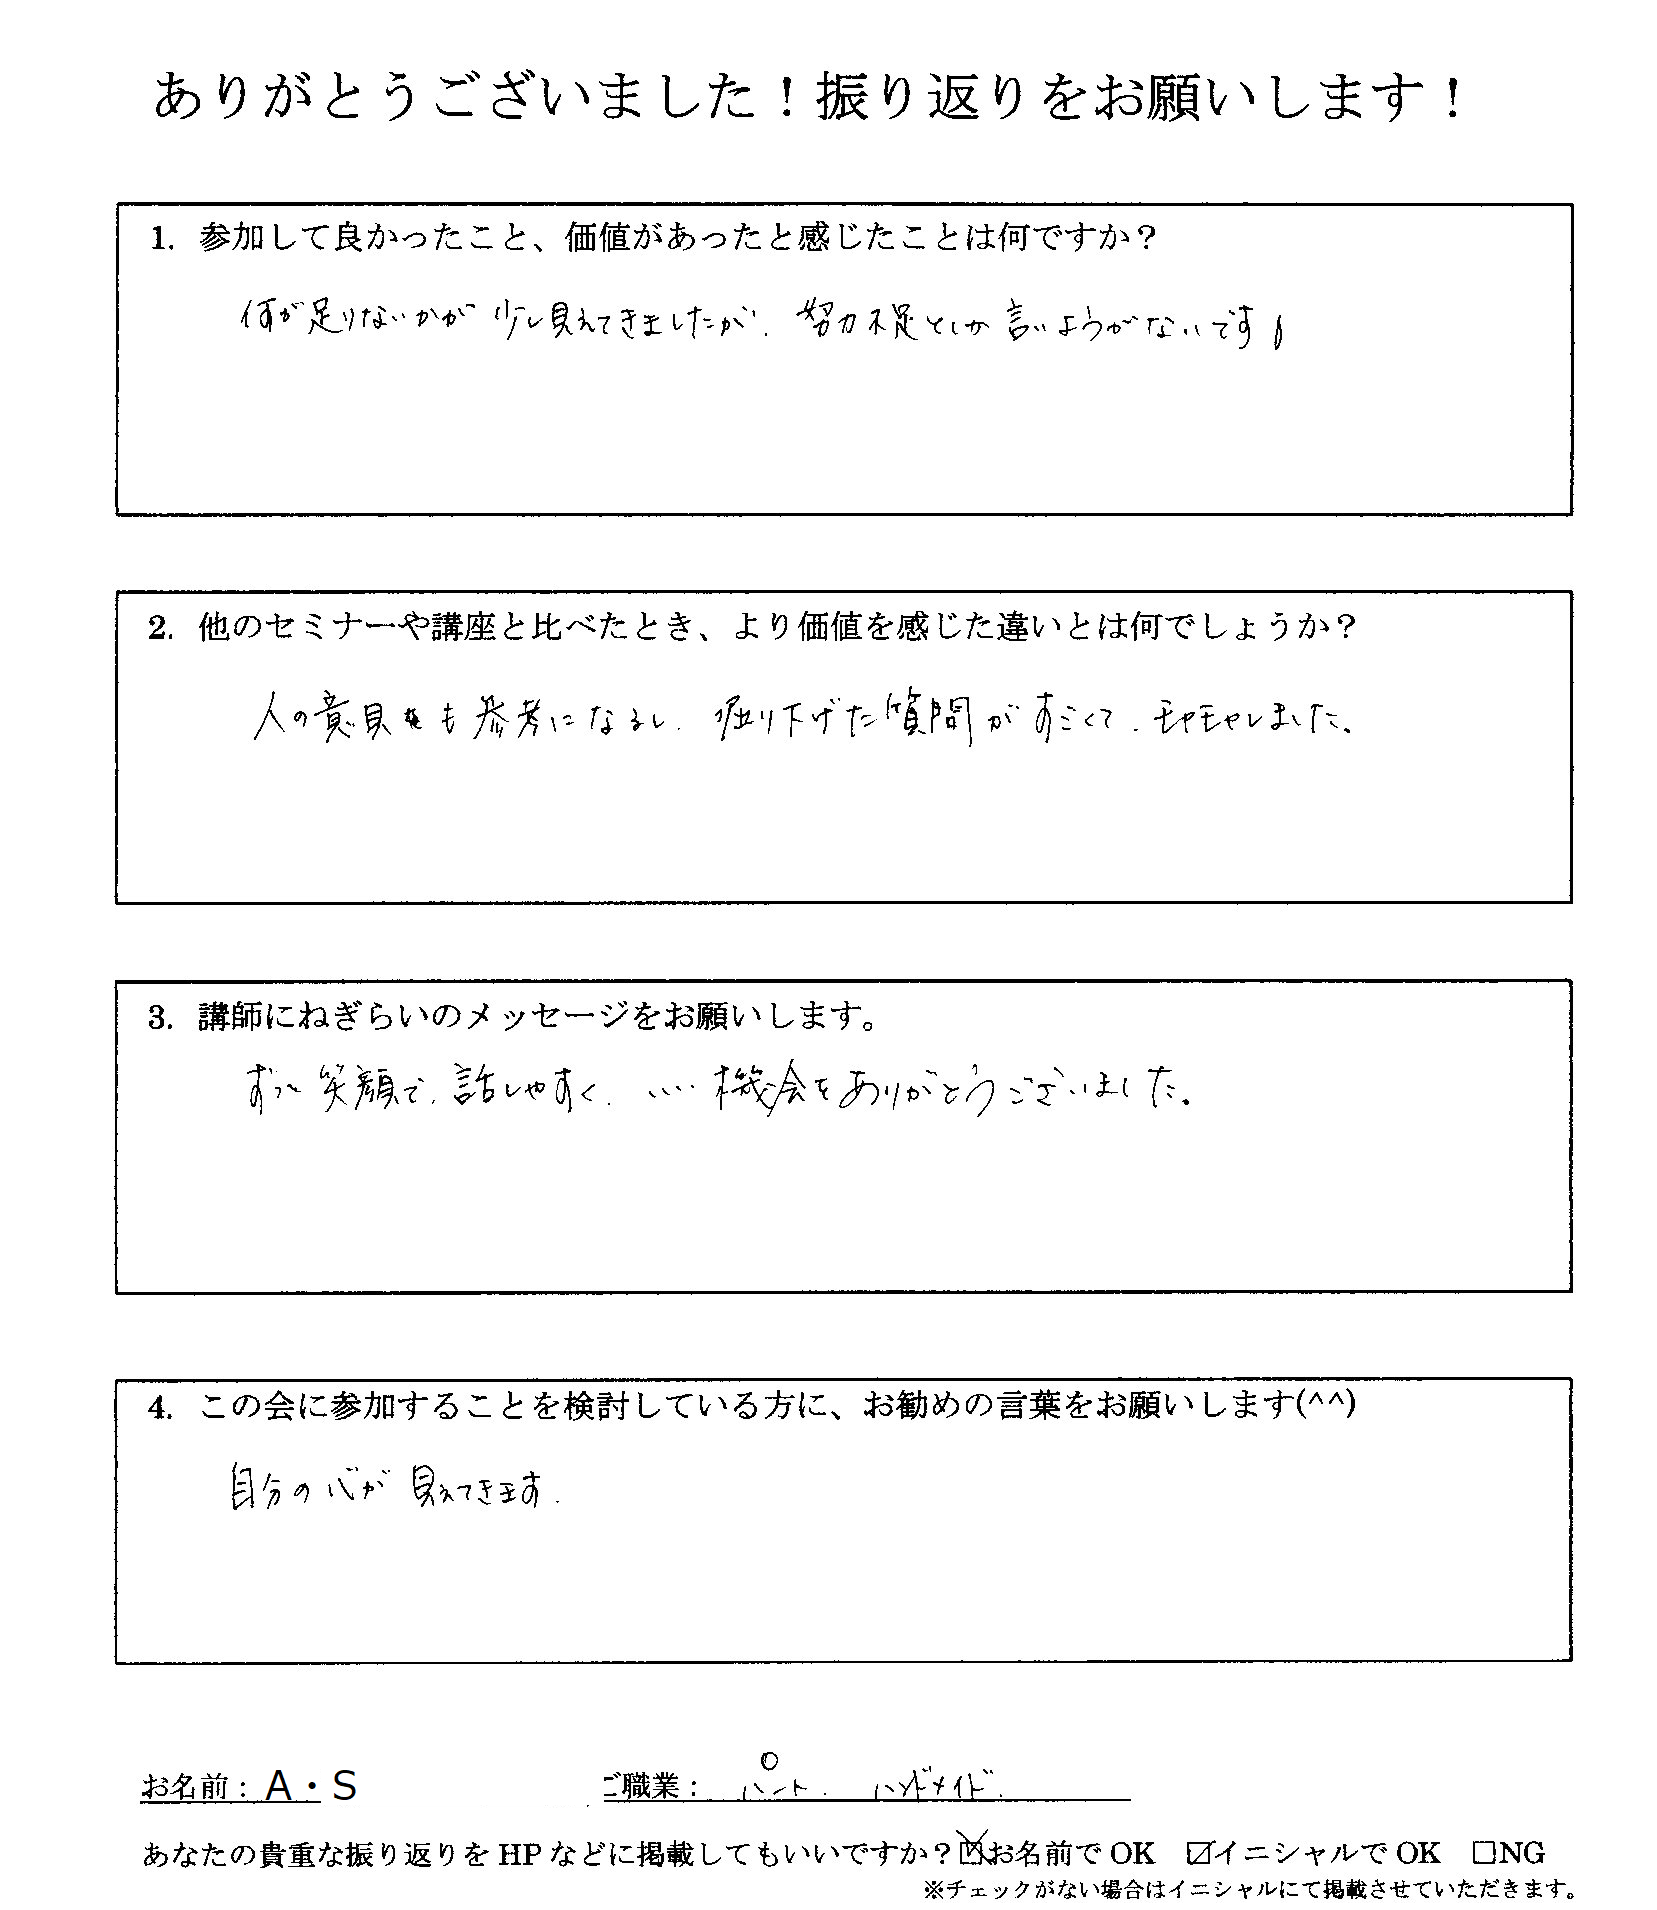 ありがとうございました！振り返りをお願いします！
1. 参加して良かったこと、価値があったと感じたことは何ですか？
何が足りないかが少し見えてきましたが、努力不足としか言いようがないです！
2. 他のセミナーや講座と比べたとき、より価値を感じた違いとは何でしょうか？
人の意見も参考になるし、掘り下げた質問がすごくて、モヤモヤしました。
3. 講師にねぎらいのメッセージをお願いします。
ずっと笑顔で、話しやすく、いい機会をありがとうございました。
4. この会に参加することを検討している方に、お勧めの言葉をお願いします(^^)
自分の心が見えてきます。
お名前：A・S ご職業：パート、ハンドメイド
あなたの貴重な振り返りを HP などに掲載してもいいですか？☒お名前で OK ☑イニシャルで OK □NG
※チェックがない場合はイニシャルにて掲載させていただきます。